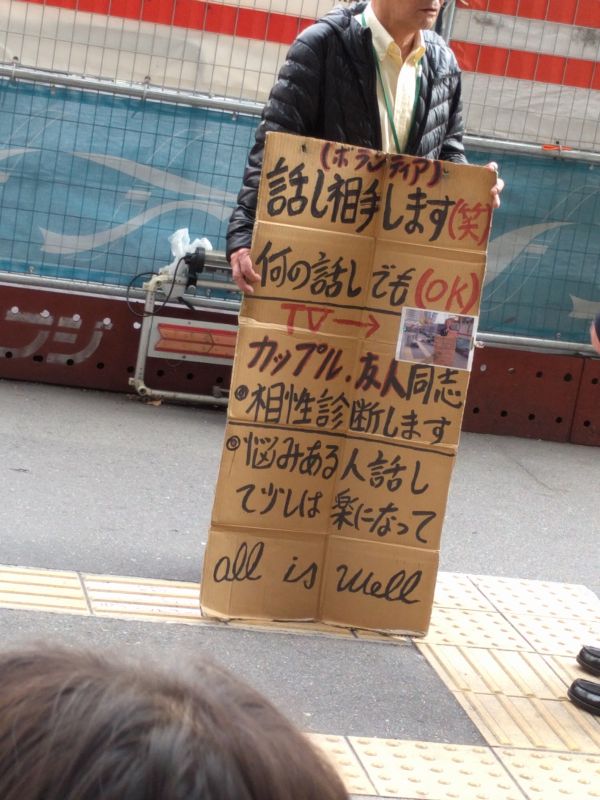 (ボランティア)
話し相手します(笑)
何の話しでも(OK)
TV→
カップル.友人同志
◎相性診断します
◎悩みある人話し
て少しは楽になって
all is well
フジ